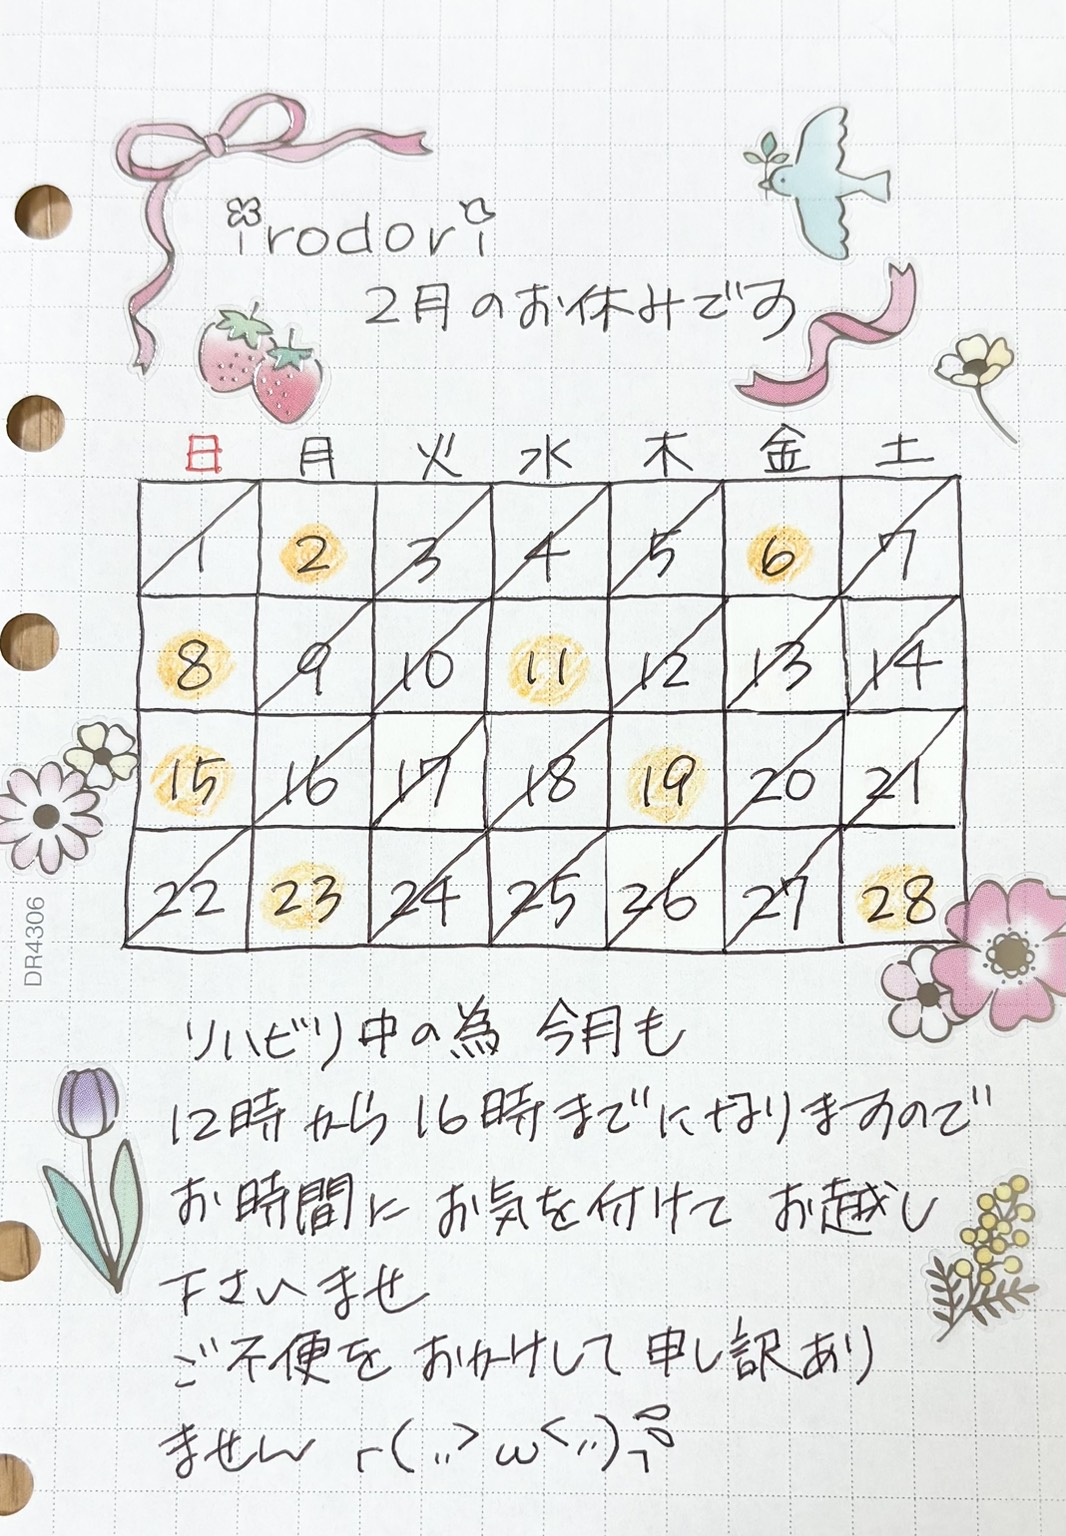 irodori
2月のお休みです
日 月 火 水 木 金 土
1 2 3 4 5 6 7
8 9 10 11 12 13 14
15 16 17 18 19 20 21
22 23 24 25 26 27 28
DR4306
リハビリ中の為 今月も
12時から16時までになりますので
お時間に お気を付けて お越し
下さいませ
ご不便を おかけして 申し訳あり
ません r(..>ω<..)